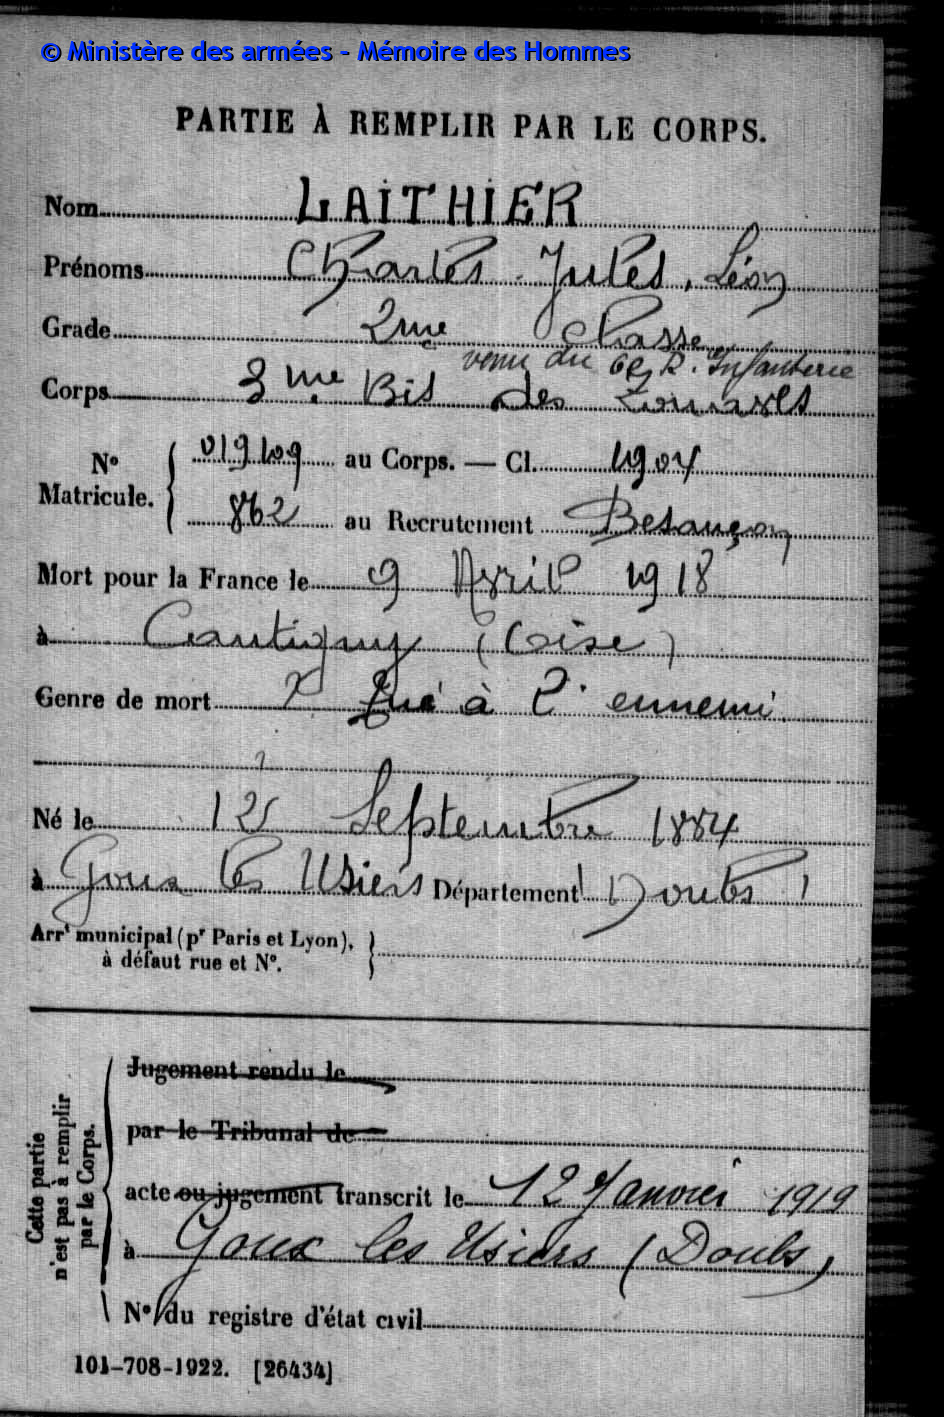 © Ministère des armées - Mémoire des Hommes
PARTIE À REMPLIR PAR LE CORPS.
Nom LAITHIER
Prénoms Charles Jules, Léon
Grade 2me Classe
venu du 6e R. Infanterie
Corps 3me Bis des Zouaves
No Matricule. { 019109 au Corps. — Cl. 1904
862 au Recrutement Besançon
Mort pour la France le 9 Avril 1918
à Cantigny (Oise)
Genre de mort Tué à l'ennemi
Né le 12 Septembre 1884
à Goux les Usiers Département Doubs
Arrt municipal (pr Paris et Lyon),
à défaut rue et No.
Cette partie
n'est pas à remplir
par le Corps.
Jugement rendu le
par le Tribunal de
acte ou jugement transcrit le 12 Janvier 1919
à Goux les Usiers (Doubs)
No du registre d'état civil
101-708-1922. [26434]